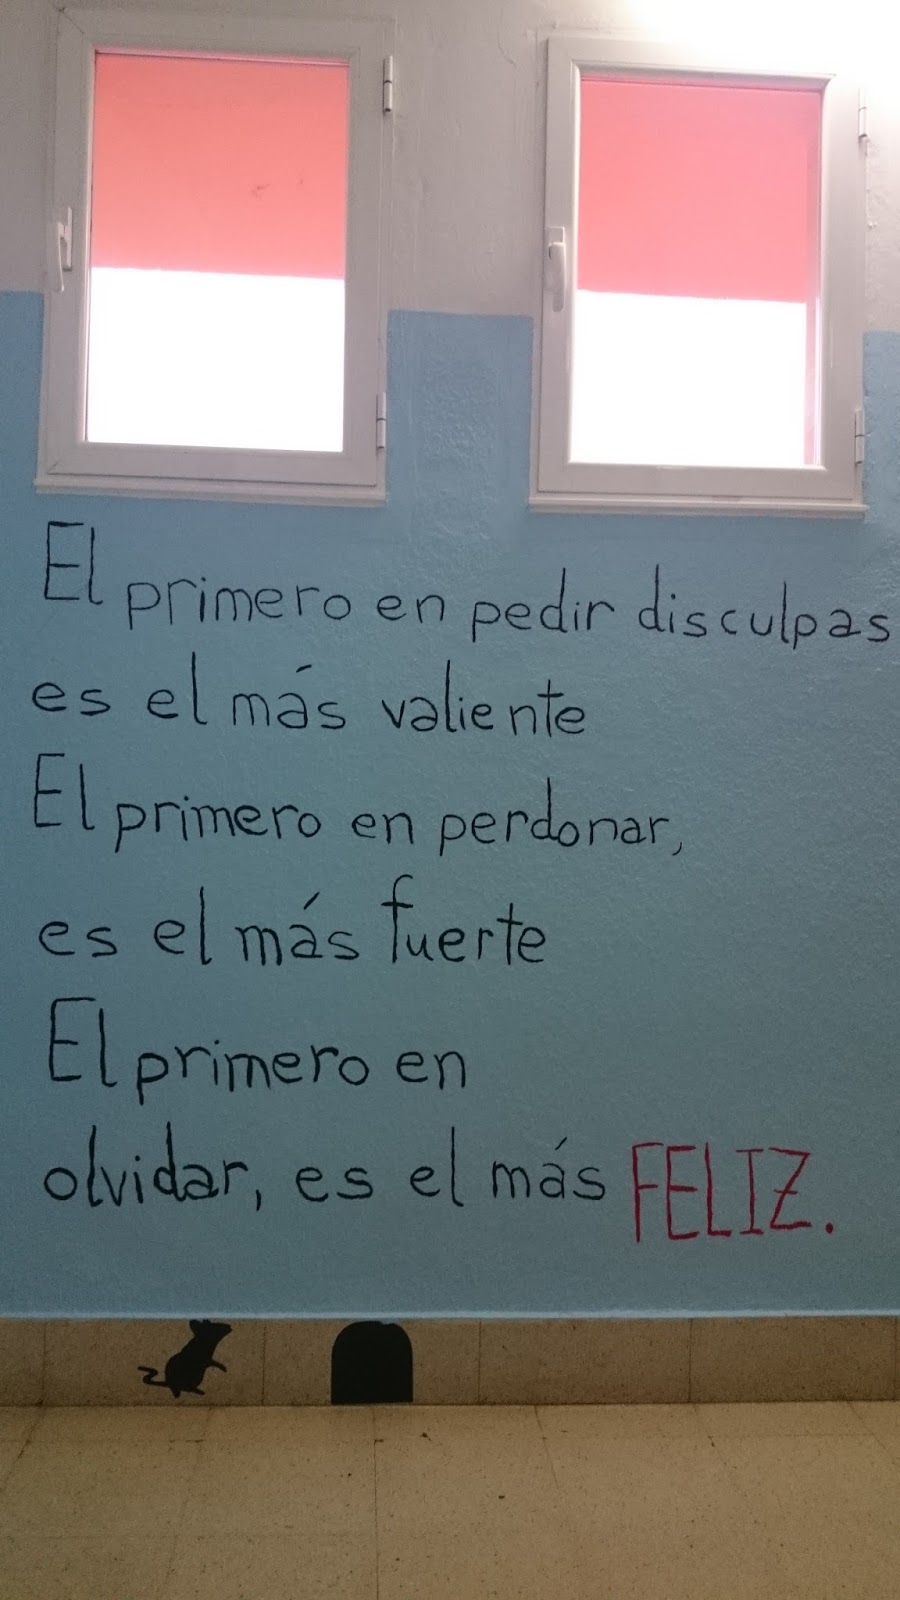 El primero en pedir disculpas
es el más valiente
El primero en perdonar,
es el más fuerte
El primero en
olvidar, es el más FELIZ.